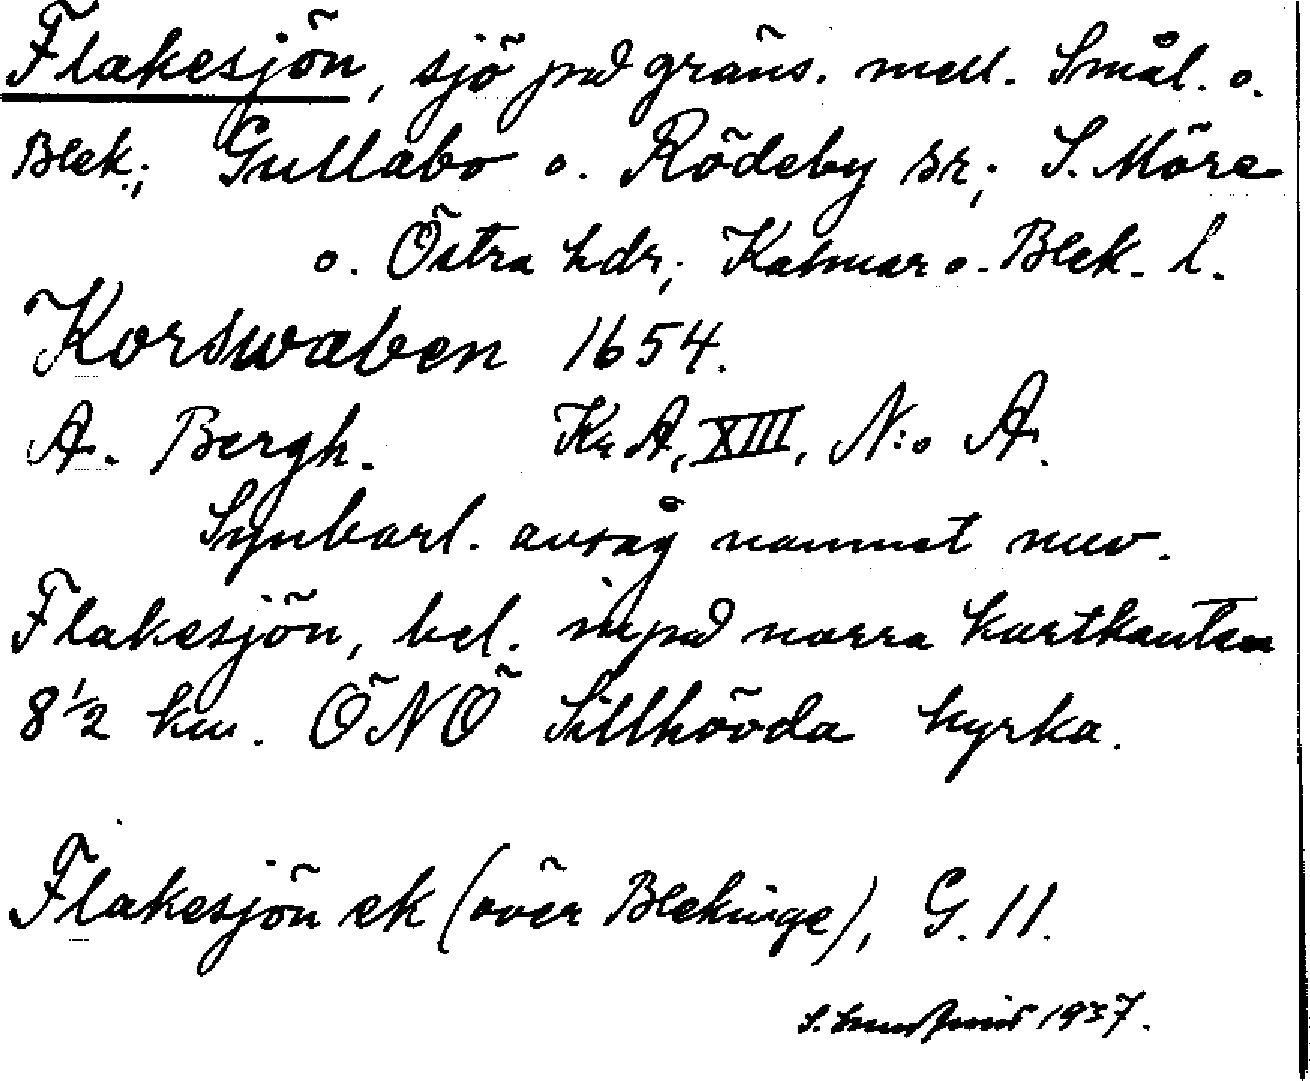 Flakesjön, sjö på gräns. mell. Smål. o.
Blek.; Gullabo o. Rödeby sr; S. Möre
o. Östra hdr; Kalmar o. Blek. l.
Korswaben 1654.
A. Bergh. Kr A, XIII, N:o A.
Synbarl. avsåg namnet nuv.
Flakesjön, bel. inpå norra kartkanten
8 1/2 km. ÖNÖ Sillhövda kyrka.
Flakesjön ek (över Blekinge), G. 11.
S. 1937.